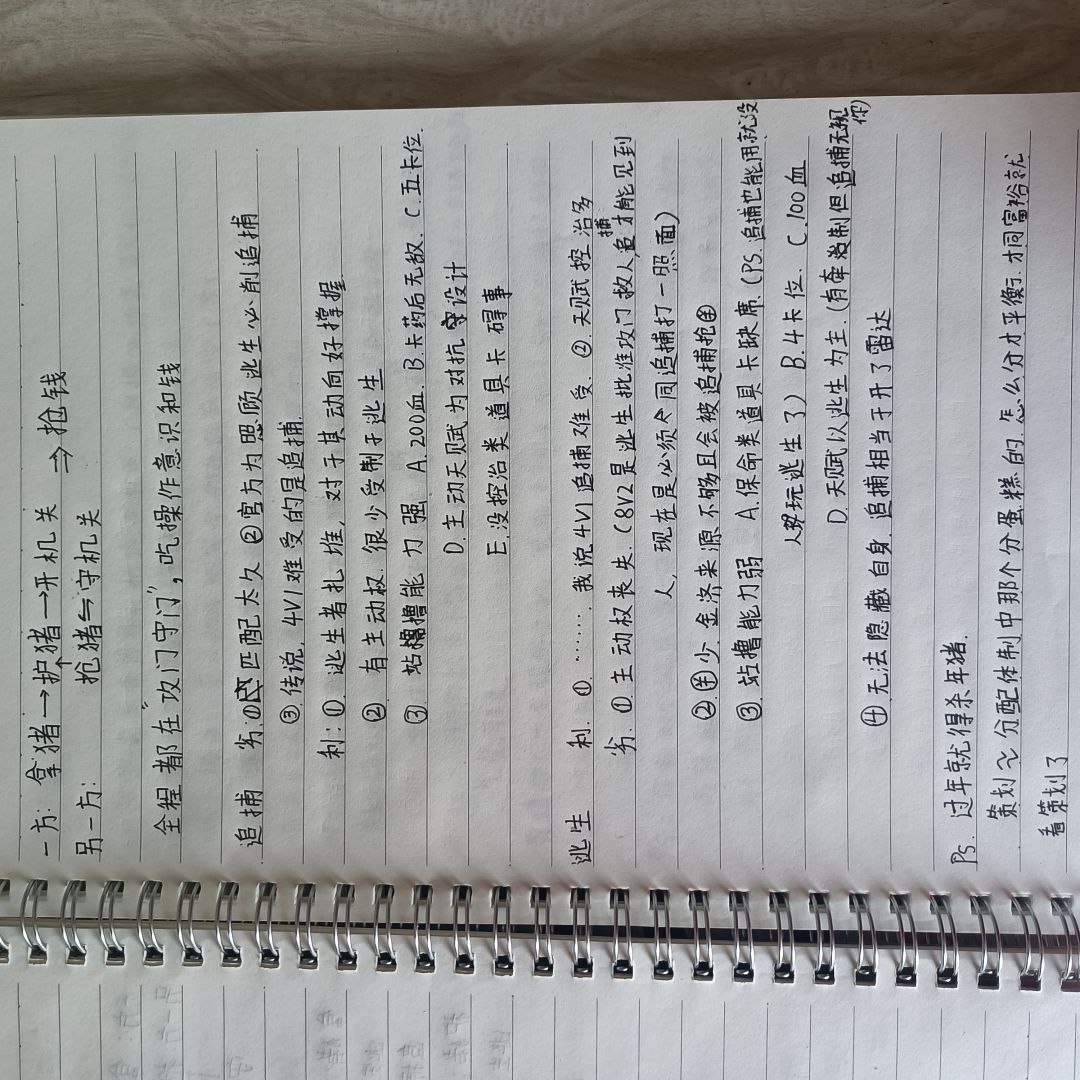 一方: 拿猪→护猪→开机关 ⇒ 抢钱
另一方: 抢猪⇋守机关
全程都在"攻门守门", 吃操作意识和钱
追捕 劣:①匹配太久 ②官方为照顾逃生必削追捕
③传说. 4V1难受的是追捕.
利:① 逃生者扎堆, 对于其动向好撑握
② 有主动权. 很少受制于逃生
③ 站撸能力强 A.200血. B.卡药后无敌. C.五卡位.
D.主动天赋为对抗设计
E.没控治类道具卡碍事
逃生 利. ①. ……. 我说4V1追捕难受. ②天赋控治多
劣. ①主动权丧失. (8V2是逃生批准攻门救人,追捕才能见到
人, 现在是必须今同追捕打一照面)
②少. 金济来源不够且会被追捕抢
③. 站撸能力弱 A.保命类道具卡缺席. (PS.追捕也能用就没
人玩逃生了) B.4卡位. C.100血
D.天赋以逃生为主. (有牵制但追捕无视
你)
④无法隐藏自身. 追捕相当于开了雷达
Ps. 过年就得杀年猪.
策划~分配体制中那个分蛋糕的. 怎么分才平衡. 才同富裕就
看策划了